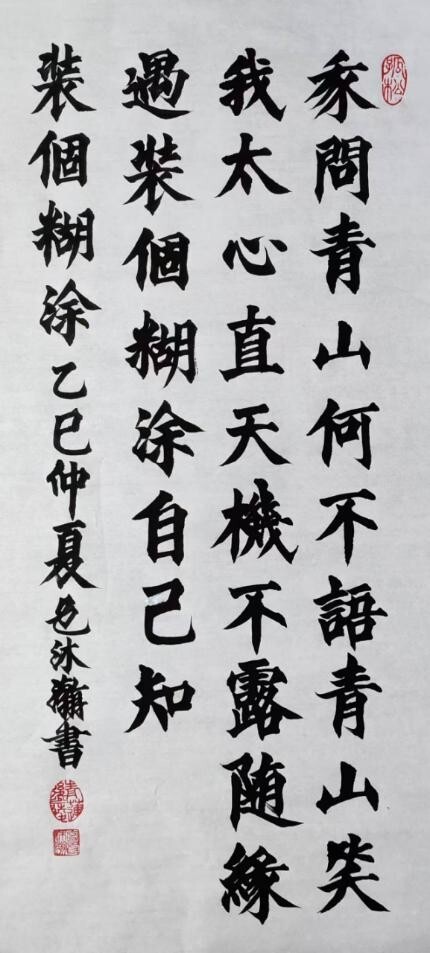 問青山何不語青山笑
我太心直天機不露随緣
遇裝個糊涂自己知
裝個糊涂乙巳仲夏沐書